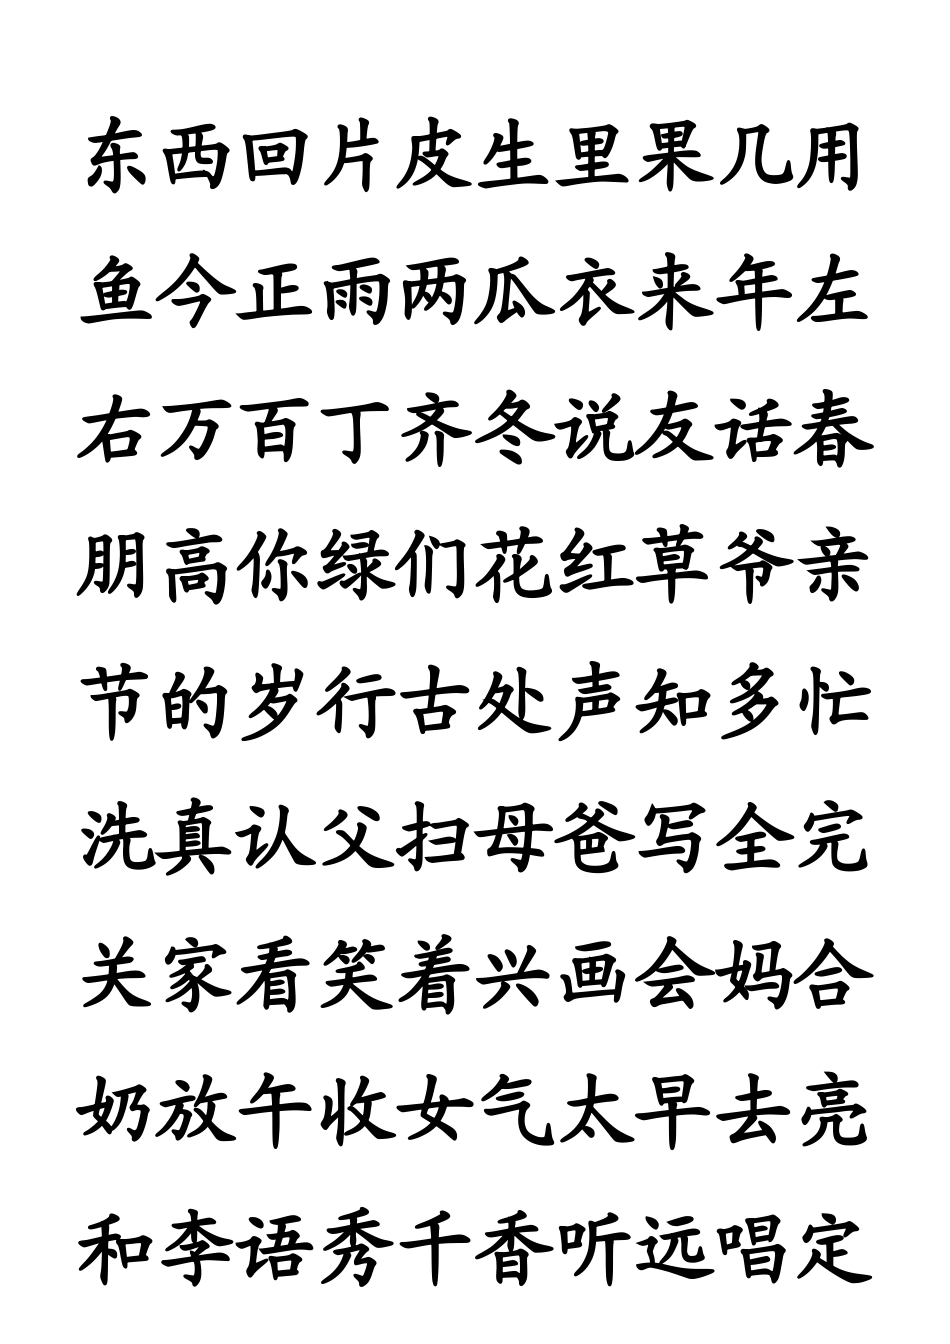 东西回片皮生里果几用
鱼今正雨两瓜衣来年左
右万百丁齐冬说友话春
朋高你绿们花红草爷亲
节的岁行古处声知多忙
洗真认父扫母爸写全完
关家看笑着兴画会妈合
奶放午收女气太早去亮
和李语秀千香听远唱定